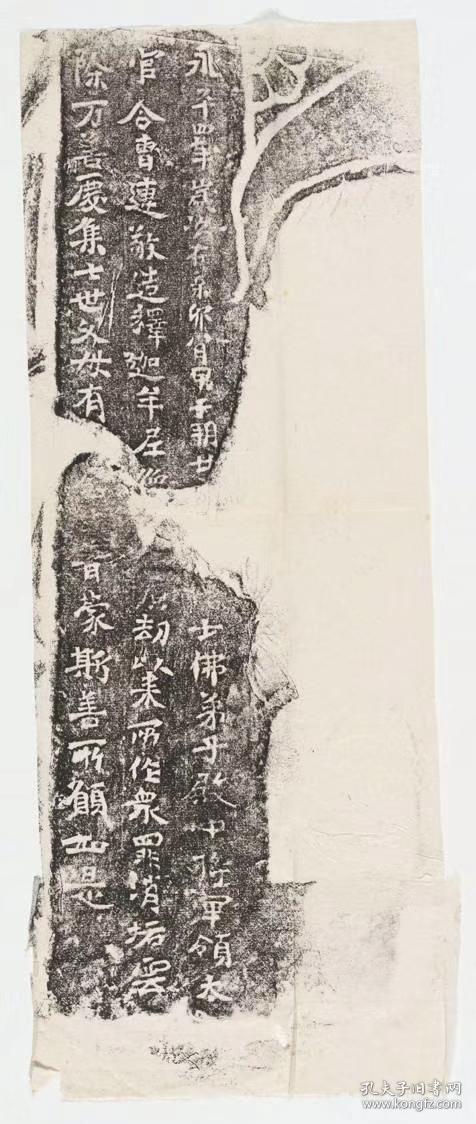 永平四年歲次在辛卯八月甲子朔廿
士佛弟子殿中將軍領太
官令曹連敬造釋迦牟尼像
劫以来所作衆罪消垢雲
除万善慶集七世父母有
蒙斯善所願如是
孔夫子旧书网
www.kongfz.com